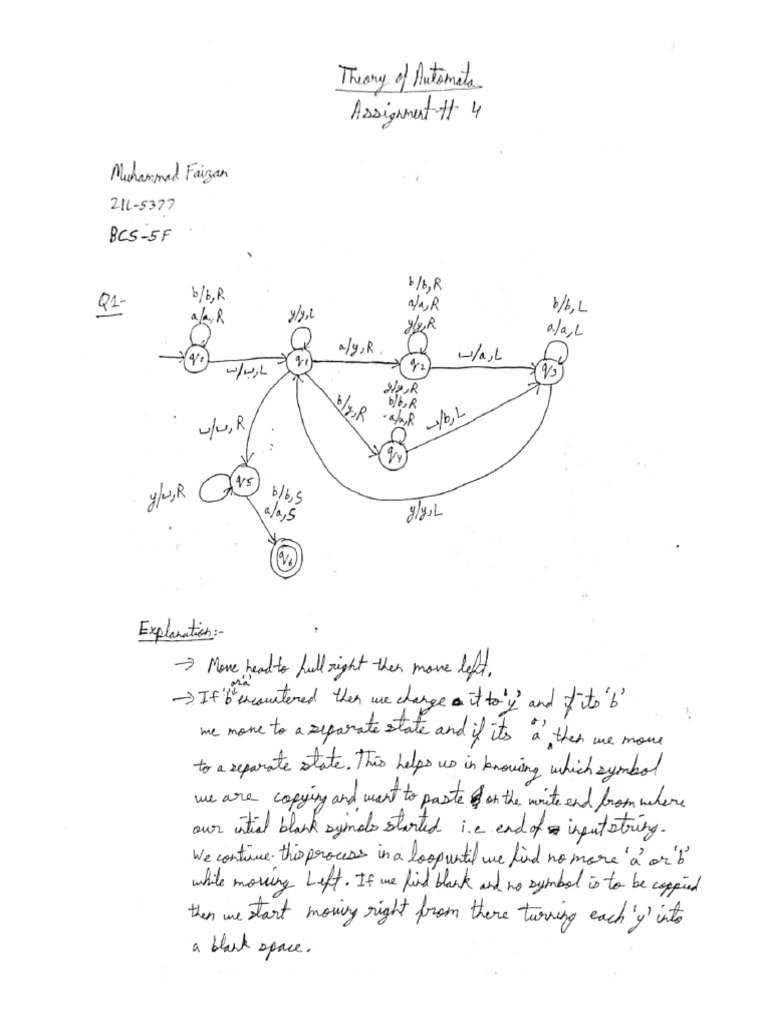 Theory of Automata
Assignment # 4
Muhammad Faizan
21L-5377
BCS-5F
Q1-
b/b,R
a/a,R
y/y,L
b/b,R
a/a,R
y/y,R
b/b,L
a/a,L
q0
⊔/⊔,L
q1
a/y,R
q2
⊔/a,L
q3
b/y,R
y/y,R
b/b,R
a/a,R
q4
⊔/b,L
⊔/⊔,R
y/⊔,R
q5
b/b,S
a/a,S
y/y,L
q6
Explanation:-
→ Move head to full right then move left.
or 'a'
→ If 'b' encountered then we change it to 'y' and if its 'b'
we move to a separate state and if its 'a', then we move
to a separate state. This helps us in knowing which symbol
we are copying and want to paste on the write end from where
our intial blank symols started i.e end of input string.
We continue this process in a loop until we find no more 'a' or 'b'
while moving Left. If we find blank and no symbol is to be coppied
then we start moving right from there turning each 'y' into
a blank space.